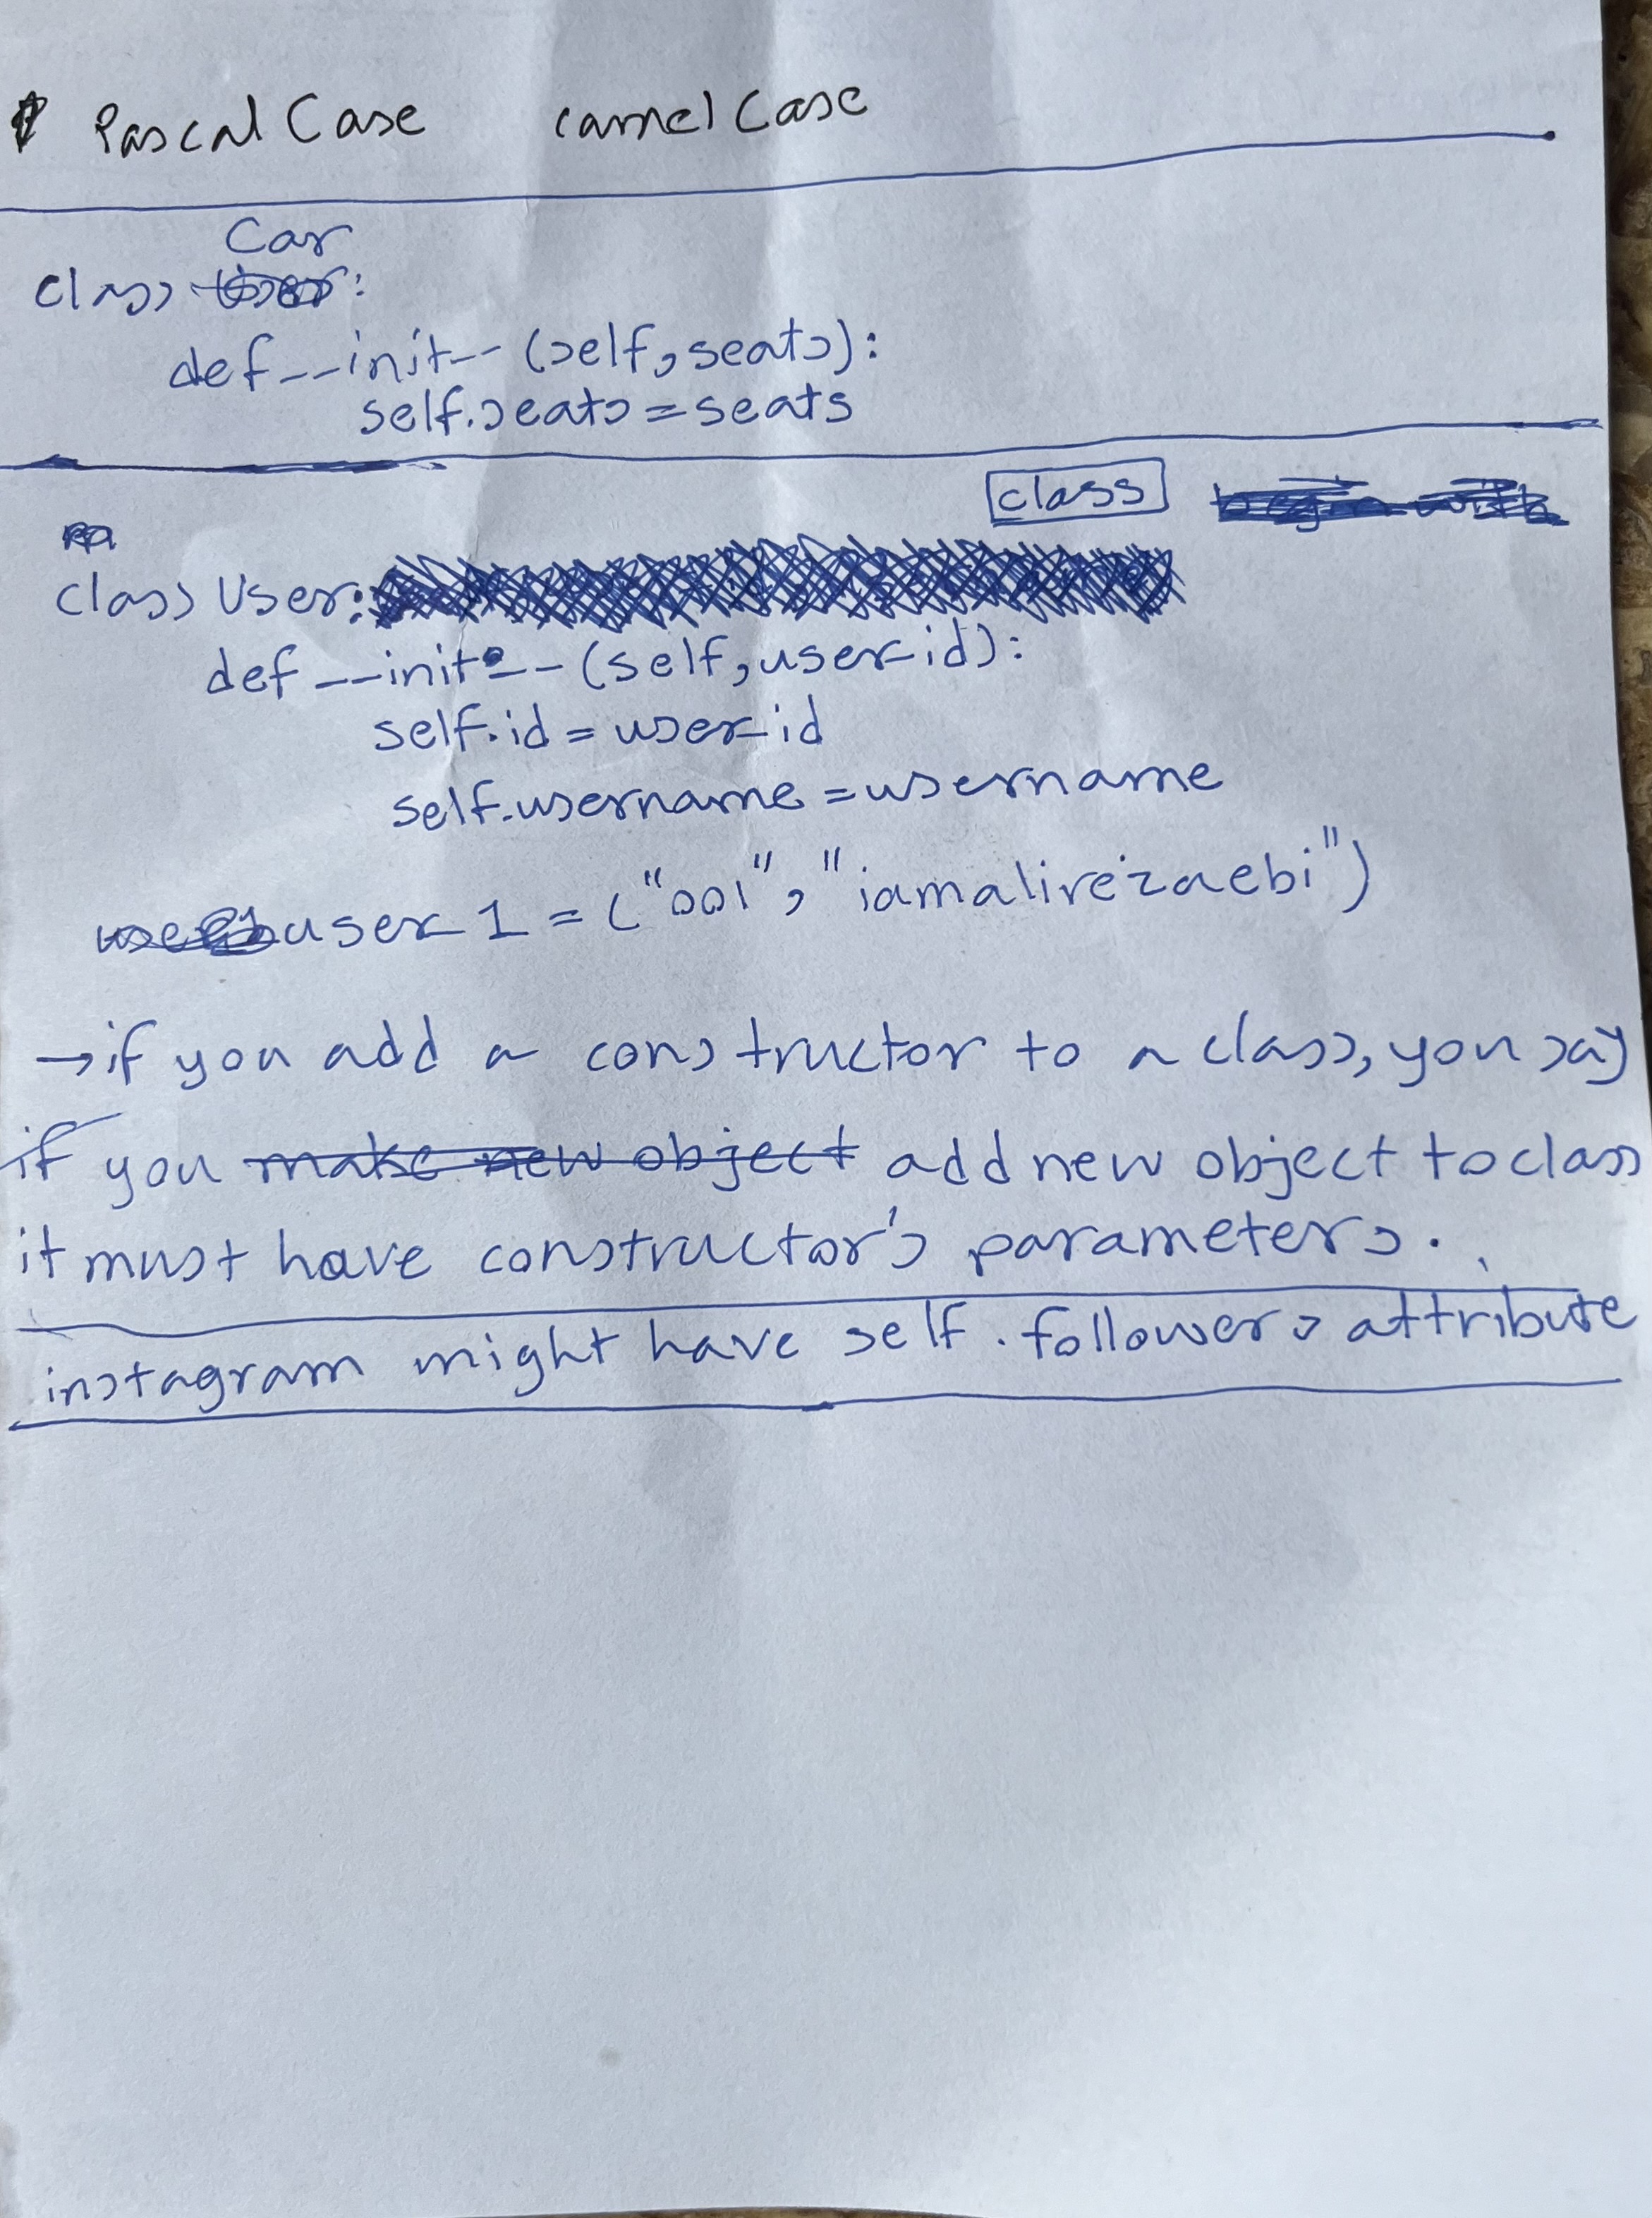 PascalCase camelCase
Car
class User:
def __init__(self, seats):
self.seats = seats
class begin with
class User:
def __init__(self, user_id):
self.id = user_id
self.username = username
user_1 = ("001", "iamalirezaebi")
→ if you add a constructor to a class, you say
if you make new object add new object to class
it must have constructor's parameters.
instagram might have self.followers attribute